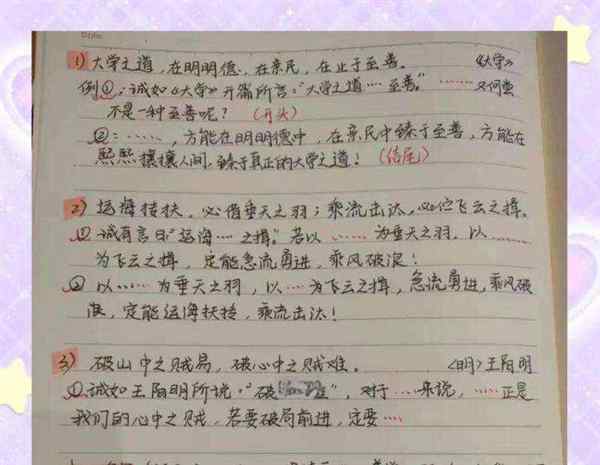 Date.
1) 大学之道,在明明德,在亲民,在止于至善。 《大学》
例①:诚如《大学》开篇所言:"大学之道……至善。" …… 又何尝
不是一种至善呢? (开头)
②:……,方能在明明德中,在亲民中臻于至善,方能在
熙熙攘攘人间,臻于真正的大学之道! (结尾)
2) 运海扶扶,必借垂天之羽;乘流击汰,必伫飞云之楫。
① 诚有言曰"运海……之楫。"若以……为垂天之羽,以……
为飞云之楫,定能急流勇进,乘风破浪!
② 以……为垂天之羽,以……为飞云之楫,急流勇进,乘风破
浪,定能运海扶持,乘流击汰!
3) 破山中之贼易,破心中之贼难。 〈明〉王阳明
① 诚如王阳明所说:"破 ",对于……来说,……正是
我们的心中之贼,若要破局前进,定要……